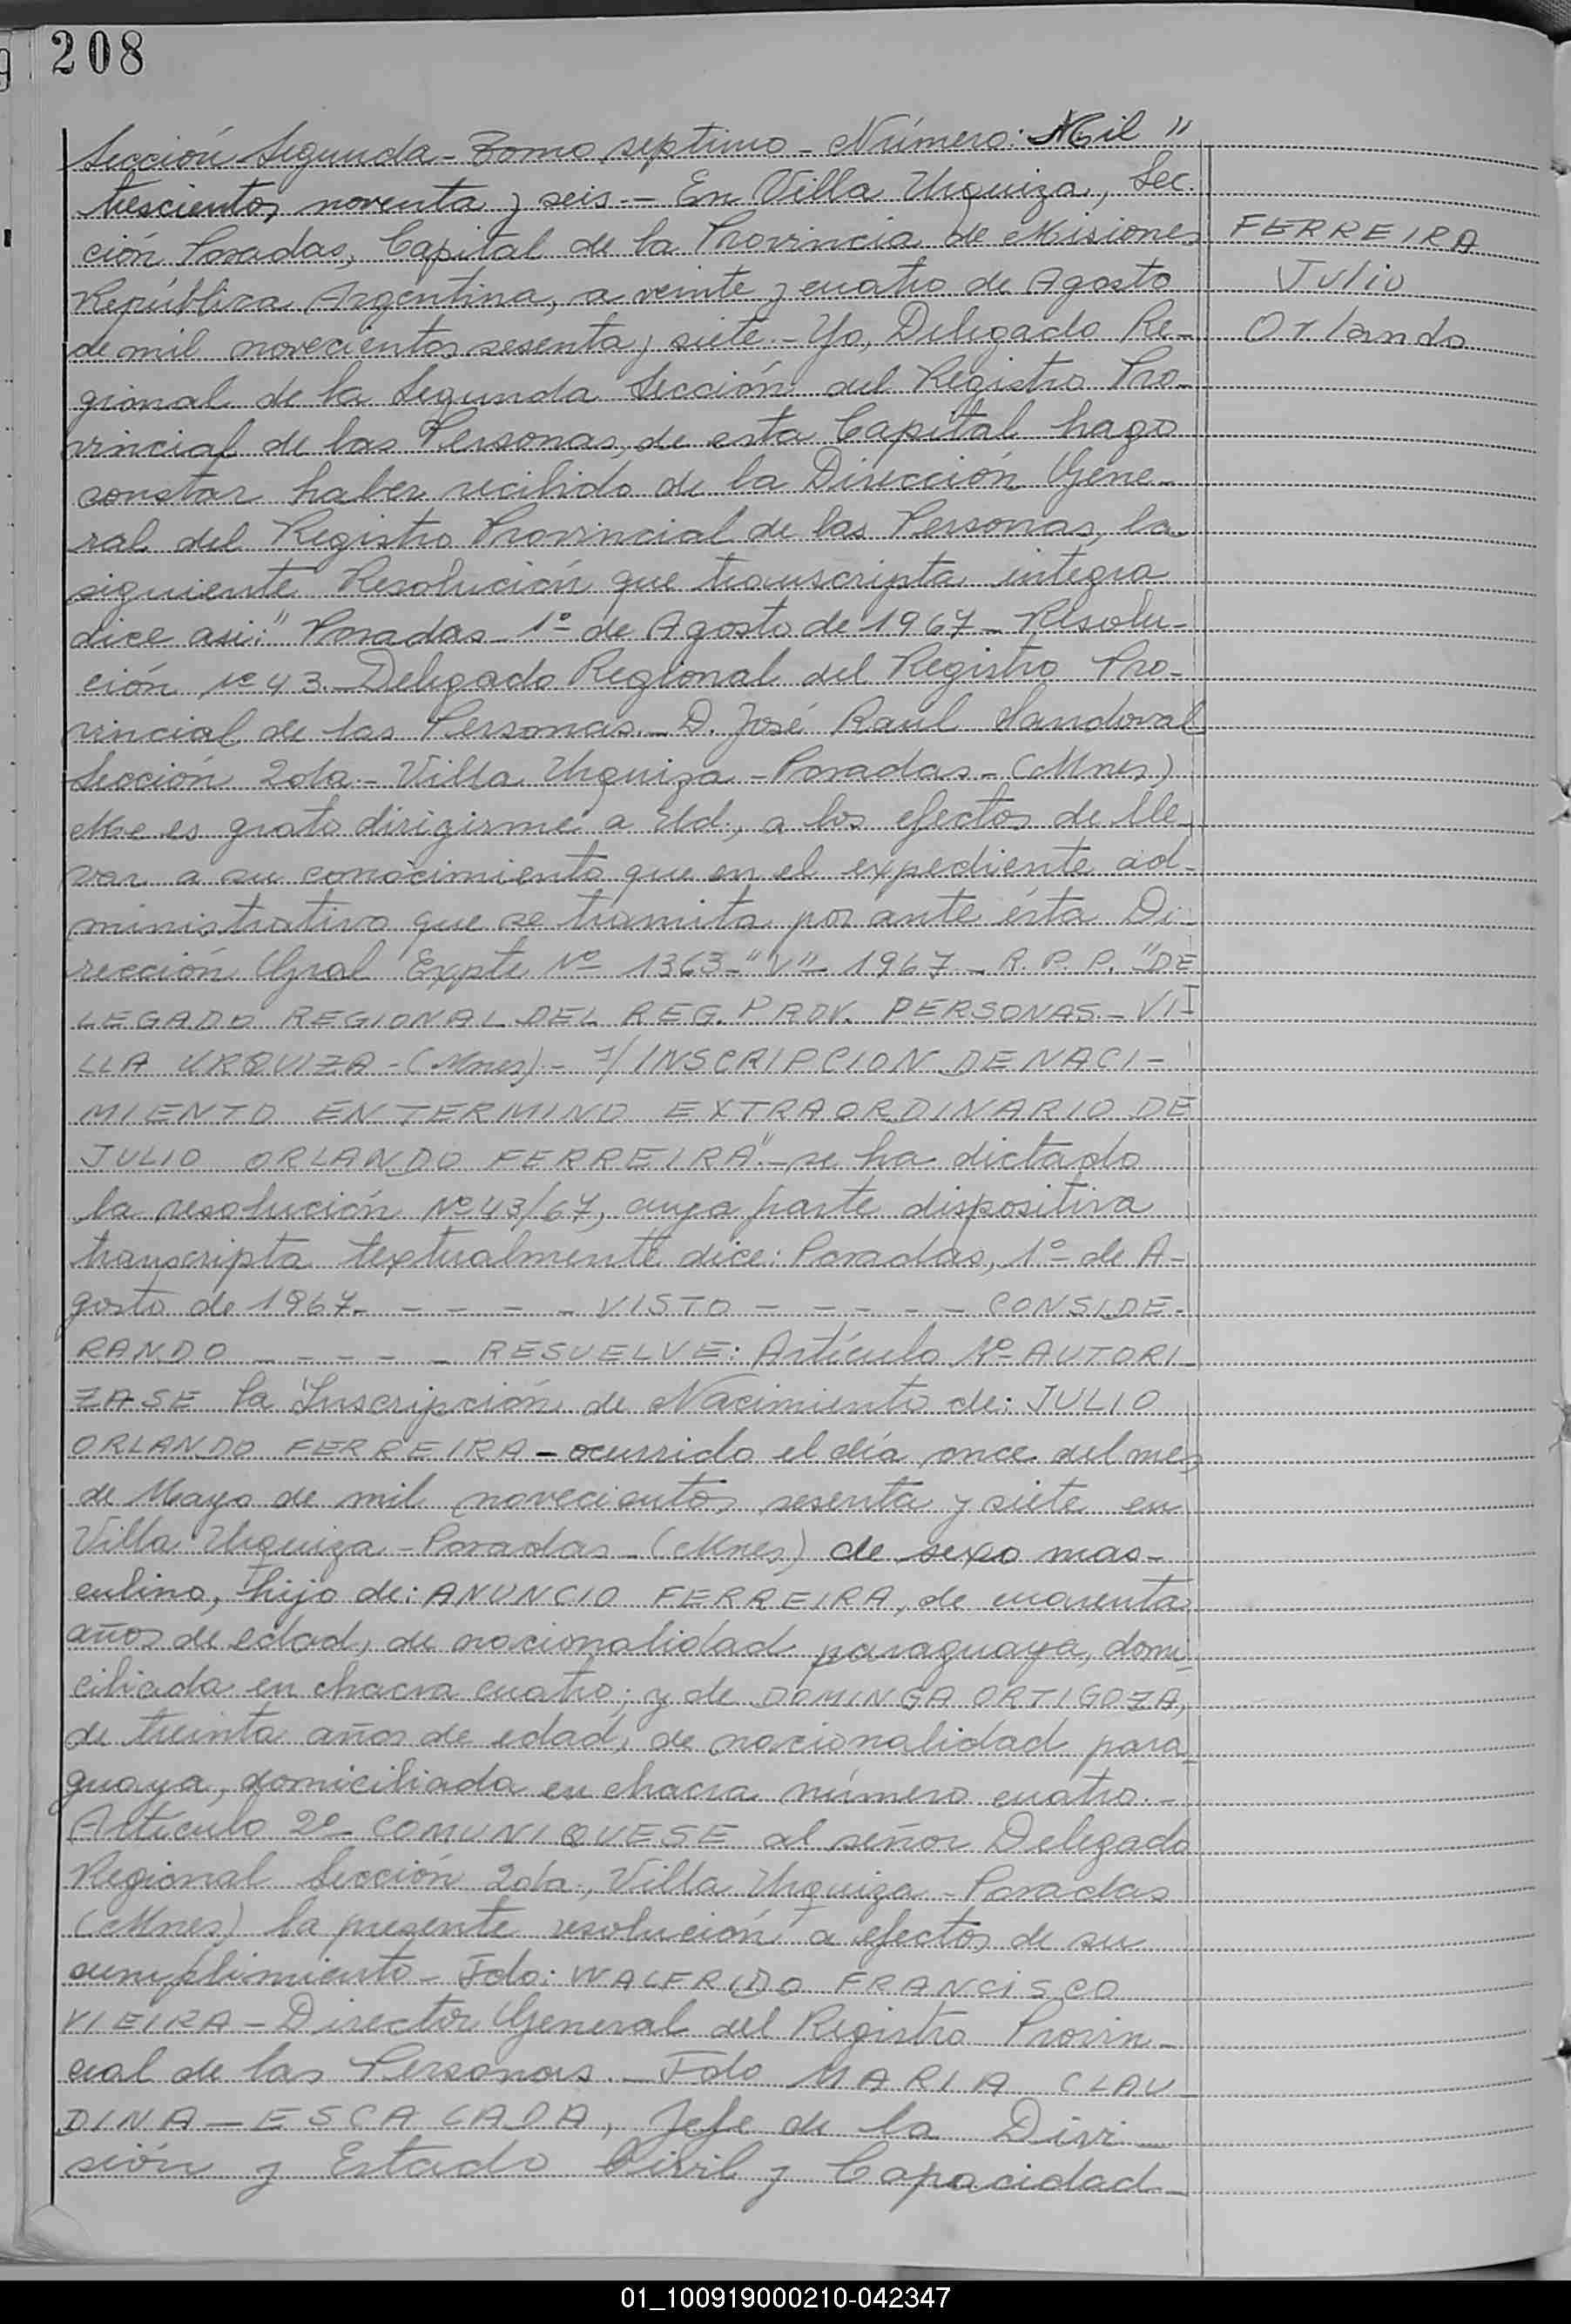 208
Sección Segunda - Tomo septimo - Número: Mil "
trescientos noventa y seis. - En Villa Urquiza, Sec-
ción Posadas, Capital de la Provincia de Misiones
República Argentina, a veinte y cuatro de Agosto
de mil novecientos sesenta y siete. - Yo, Delegado Re-
gional de la Segunda Sección del Registro Pro-
vincial de las Personas, de esta Capital hago
constar haber recibido de la Dirección Gene-
ral del Registro Provincial de las Personas, la
siguiente Resolución que transcripta integra
dice asi: "Posadas - 1º de Agosto de 1967 - Resolu-
ción Nº 43. - Delegado Regional del Registro Pro-
vincial de las Personas. - D. José Raul Sandoval
Sección 2da - Villa Urquiza - Posadas - (Mnes)
Me es grato dirigirme a Ud., a los efectos de lle-
var a su conocimiento que en el expediente ad-
ministrativo que se tramita por ante ésta Di-
rección Gral Expte Nº 1363 - "V" - 1967 - R. P. P. "DE
LEGADO REGIONAL DEL REG. PROV. PERSONAS - VI-
LLA URQUIZA - (Mnes) - s/INSCRIPCION DE NACI-
MIENTO EN TERMINO EXTRAORDINARIO DE
JULIO ORLANDO FERREIRA". - se ha dictado
la resolución Nº 43/67, cuya parte dispositiva
transcripta textualmente dice: Posadas, 1º de A-
gosto de 1967. - - - - - VISTO - - - - - CONSIDE-
RANDO - - - - - RESUELVE: Artículo 1º - AUTORI-
ZASE la Inscripción de Nacimiento de: JULIO
ORLANDO FERREIRA - ocurrido el día once del mes
de Mayo de mil novecientos sesenta y siete en
Villa Urquiza - Posadas - (Mnes) de sexo mas-
culino, hijo de: ANUNCIO FERREIRA, de cuarenta
años de edad, de nacionalidad paraguaya, domi-
ciliada en chacra cuatro; y de DOMINGA ORTIGOZA,
de treinta años de edad, de nacionalidad para-
guaya, domiciliada en chacra número cuatro. -
Artículo 2º - COMUNIQUESE al señor Delegado
Regional Sección 2da., Villa Urquiza - Posadas
(Mnes) la presente resolución a efectos de su
cumplimiento - Fdo: WALFRIDO FRANCISCO
VIEIRA - Director General del Registro Provin-
cial de las Personas. - Fdo MARIA CLAU-
DINA - ESCALADA, Jefe de la Divi-
sión y Estado Civil y Capacidad -
FERREIRA
Julio
Orlando
01_100919000210-042347